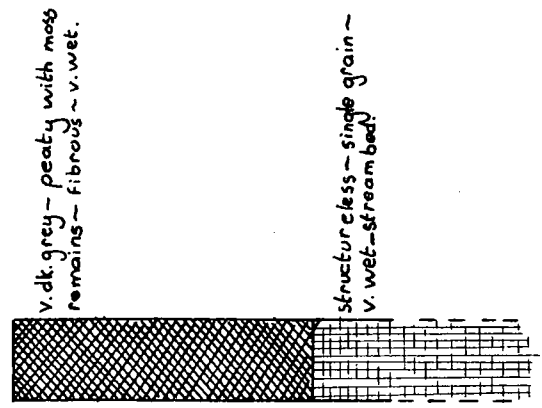 v.dk.grey~ peaty with moss
remains~ fibrous ~ v.wet.
structureless~ single grain~
v. wet_streambed.